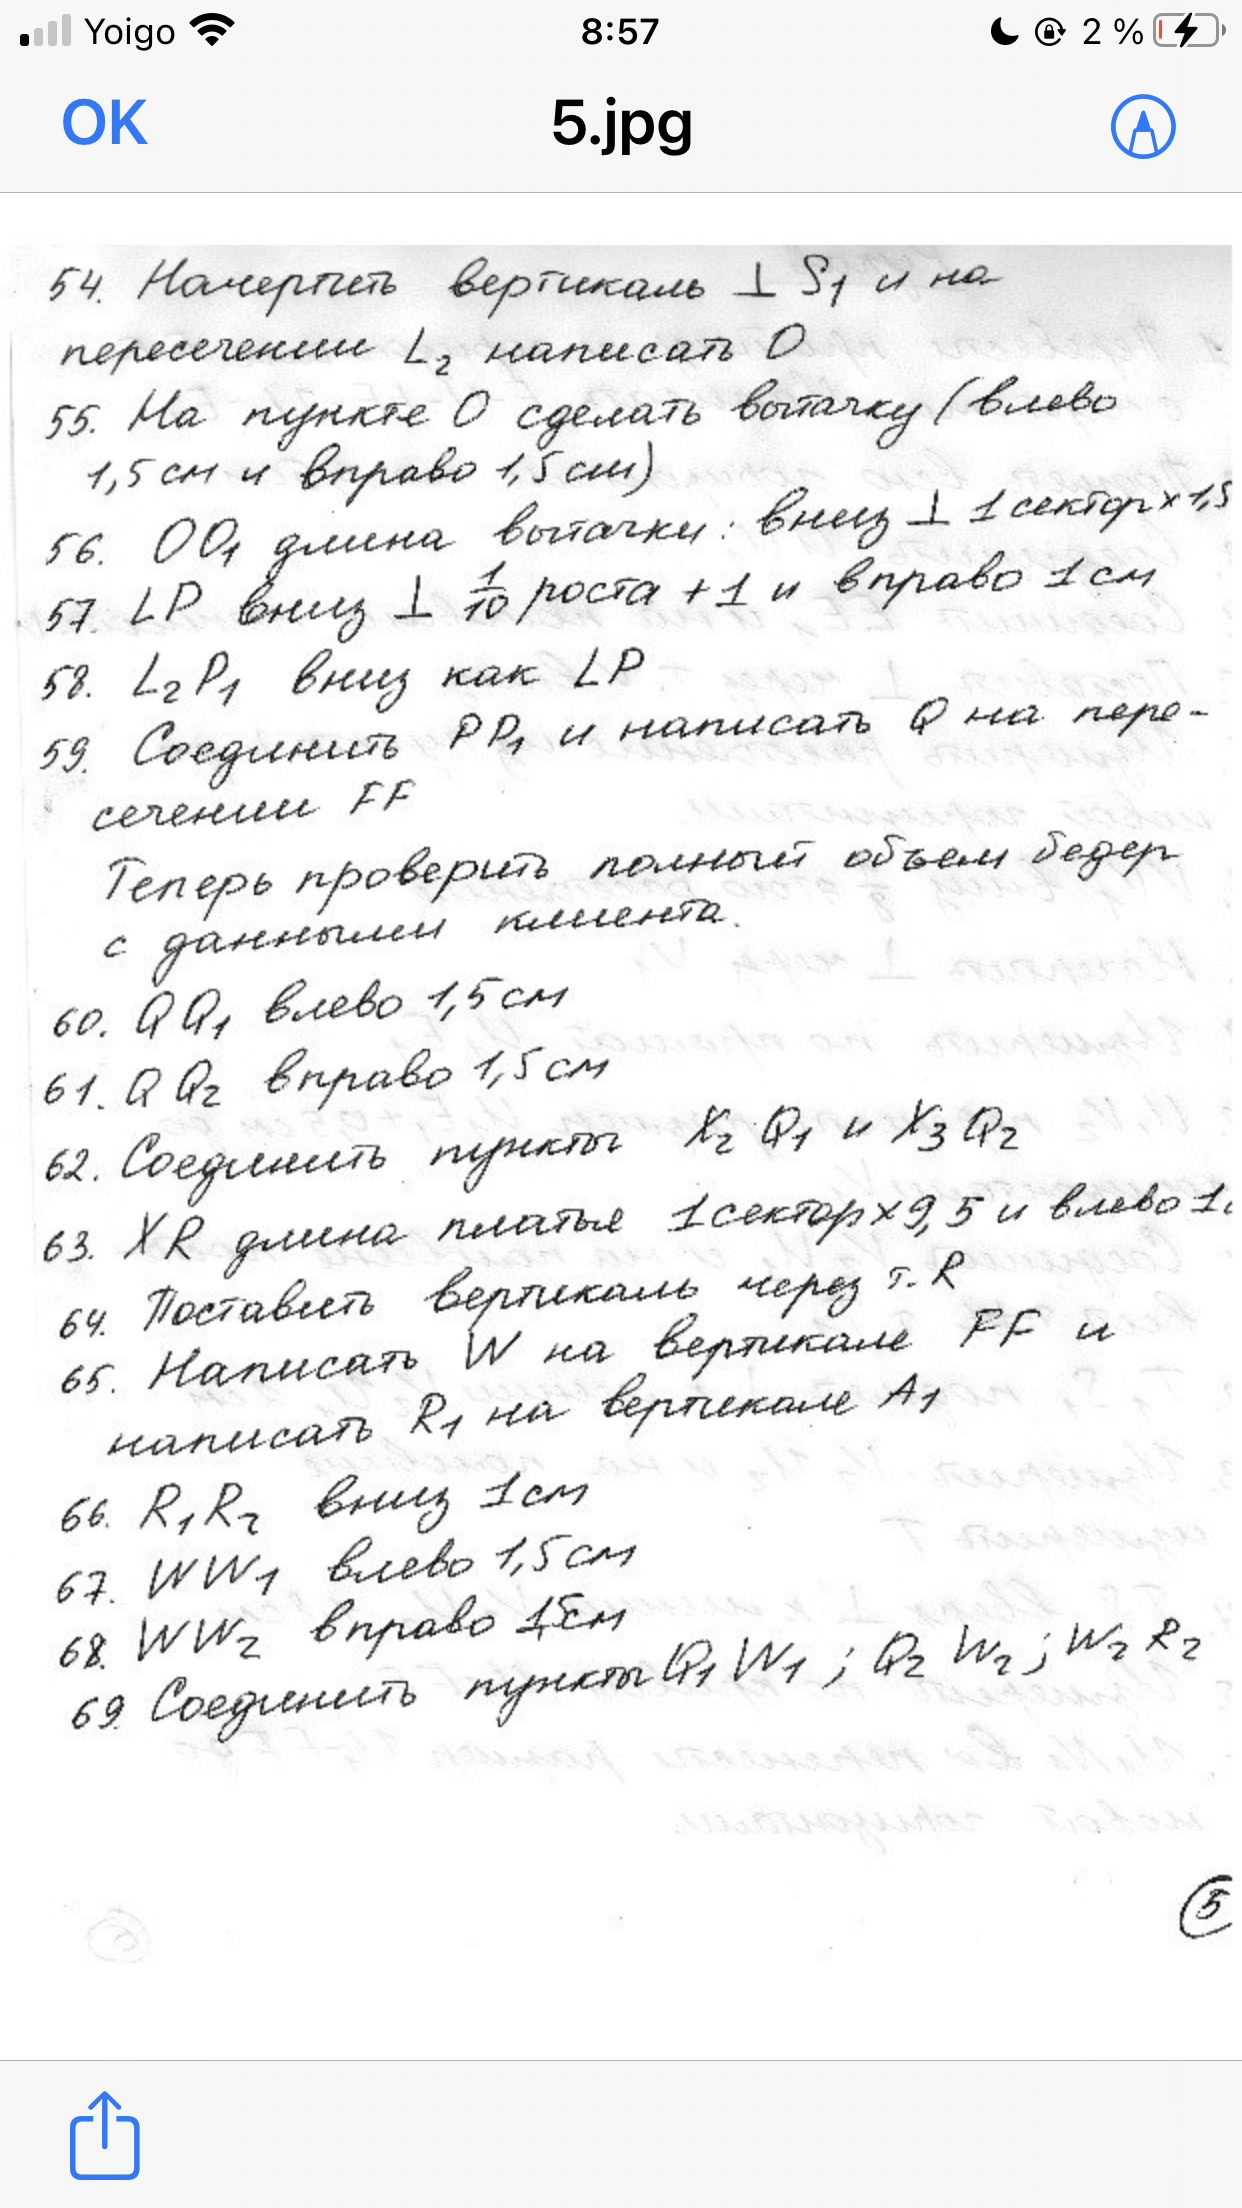 Yoigo 8:57 2 %
OK 5.jpg
54. Начертить вертикаль ⊥ S₁ и на
пересечении L₂ написать O
55. На пункте O сделать вытачку (влево
1,5 см и вправо 1,5 см)
56. OO₁ длина вытачки: вниз ⊥ 1 сектор × 1,5
57. LP вниз ⊥ 1/10 роста + 1 и вправо 1 см
58. L₂P₁ вниз как LP
59. Соединить PP₁ и написать Q на пере-
сечении FF
Теперь проверить полный объем бедер
с данными клиента.
60. QQ₁ влево 1,5 см
61. QQ₂ вправо 1,5 см
62. Соединить пункты X₂Q₁ и X₃Q₂
63. XR длина платья 1 сектор × 9,5 и влево 1
64. Поставить вертикаль через т. R
65. Написать W на вертикале FF и
написать R₁ на вертикале A₁
66. R₁R₂ вниз 1 см
67. WW₁ влево 1,5 см
68. WW₂ вправо 1,5 см
69. Соединить пункты Q₁W₁; Q₂W₂; W₂R₂
5